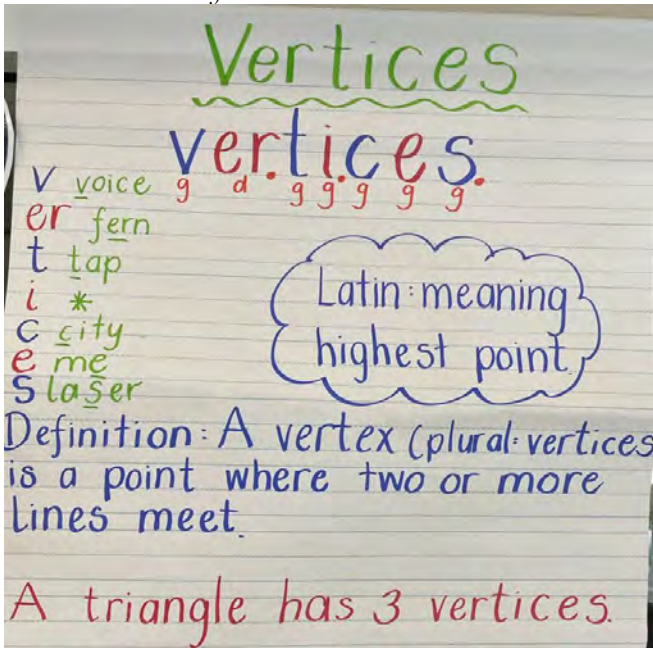 Vertices
ver.ti.ces.
g d g g g g g
v voice
er fern
t tap
i *
c city
e me
s laser
Latin: meaning
highest point.
Definition: A vertex (plural: vertices
is a point where two or more
lines meet.
A triangle has 3 vertices.